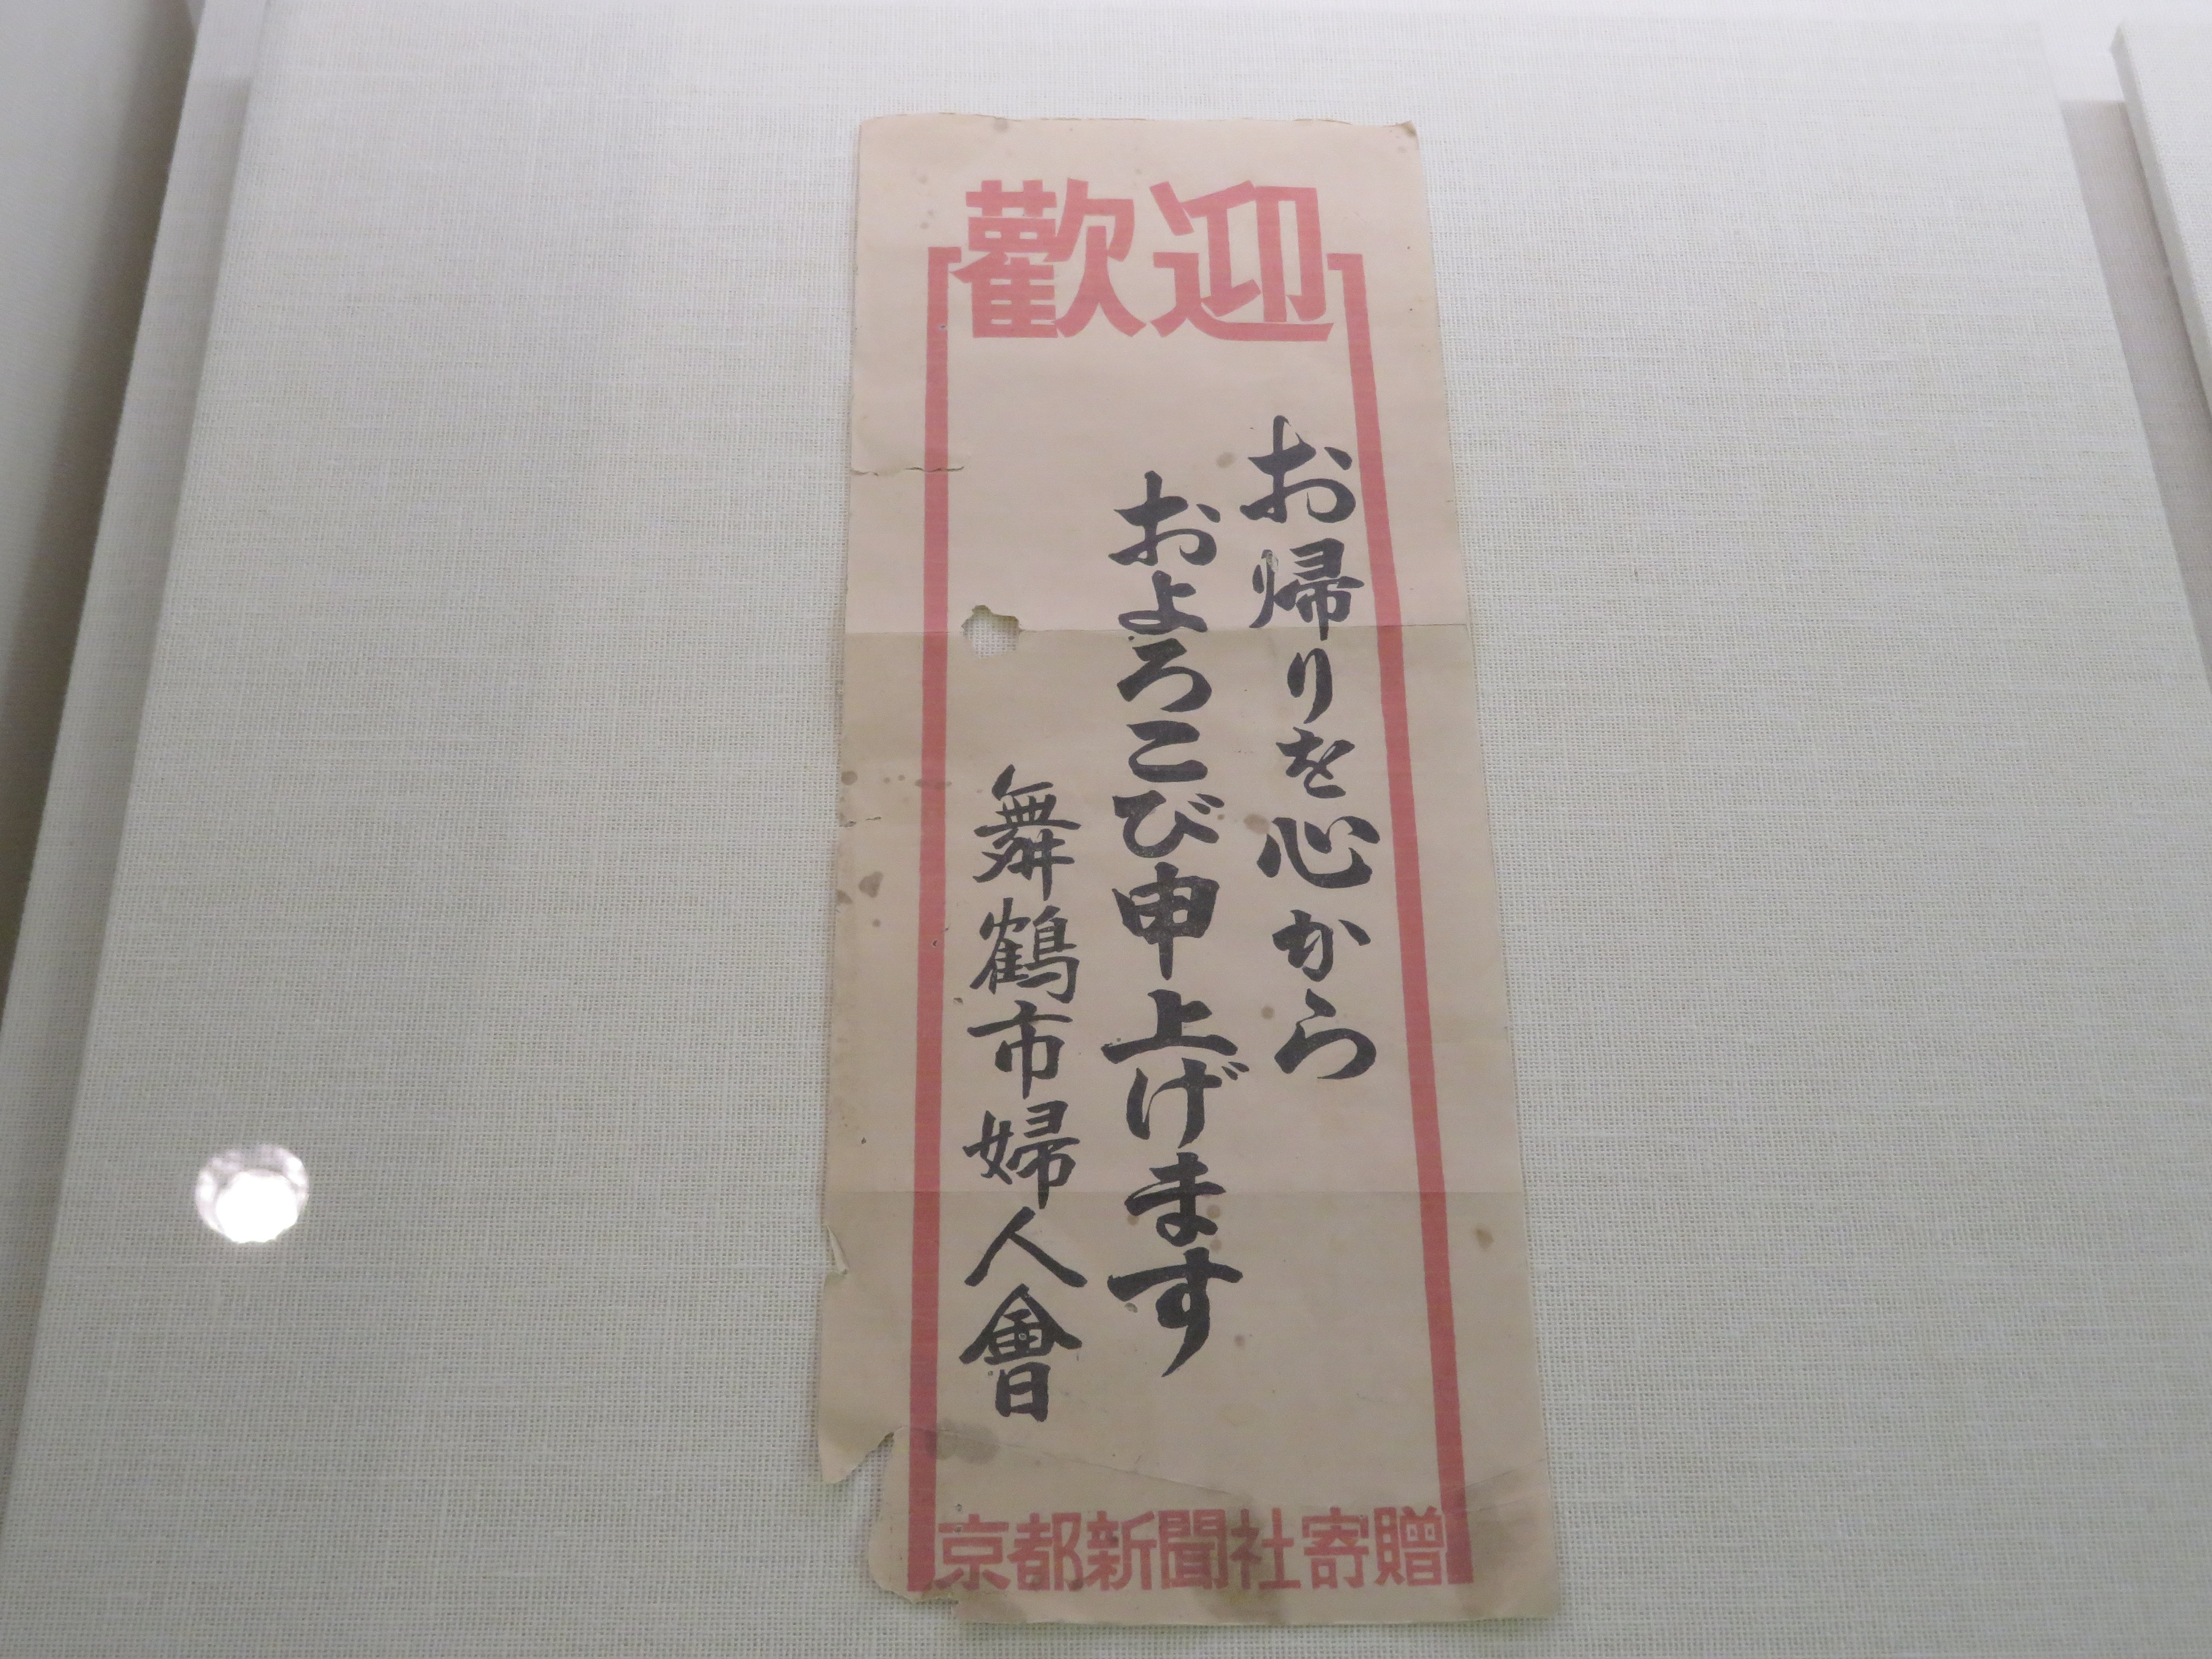 歡迎
お帰りを心から
およろこび申上げます
舞鶴市婦人會
京都新聞社寄贈